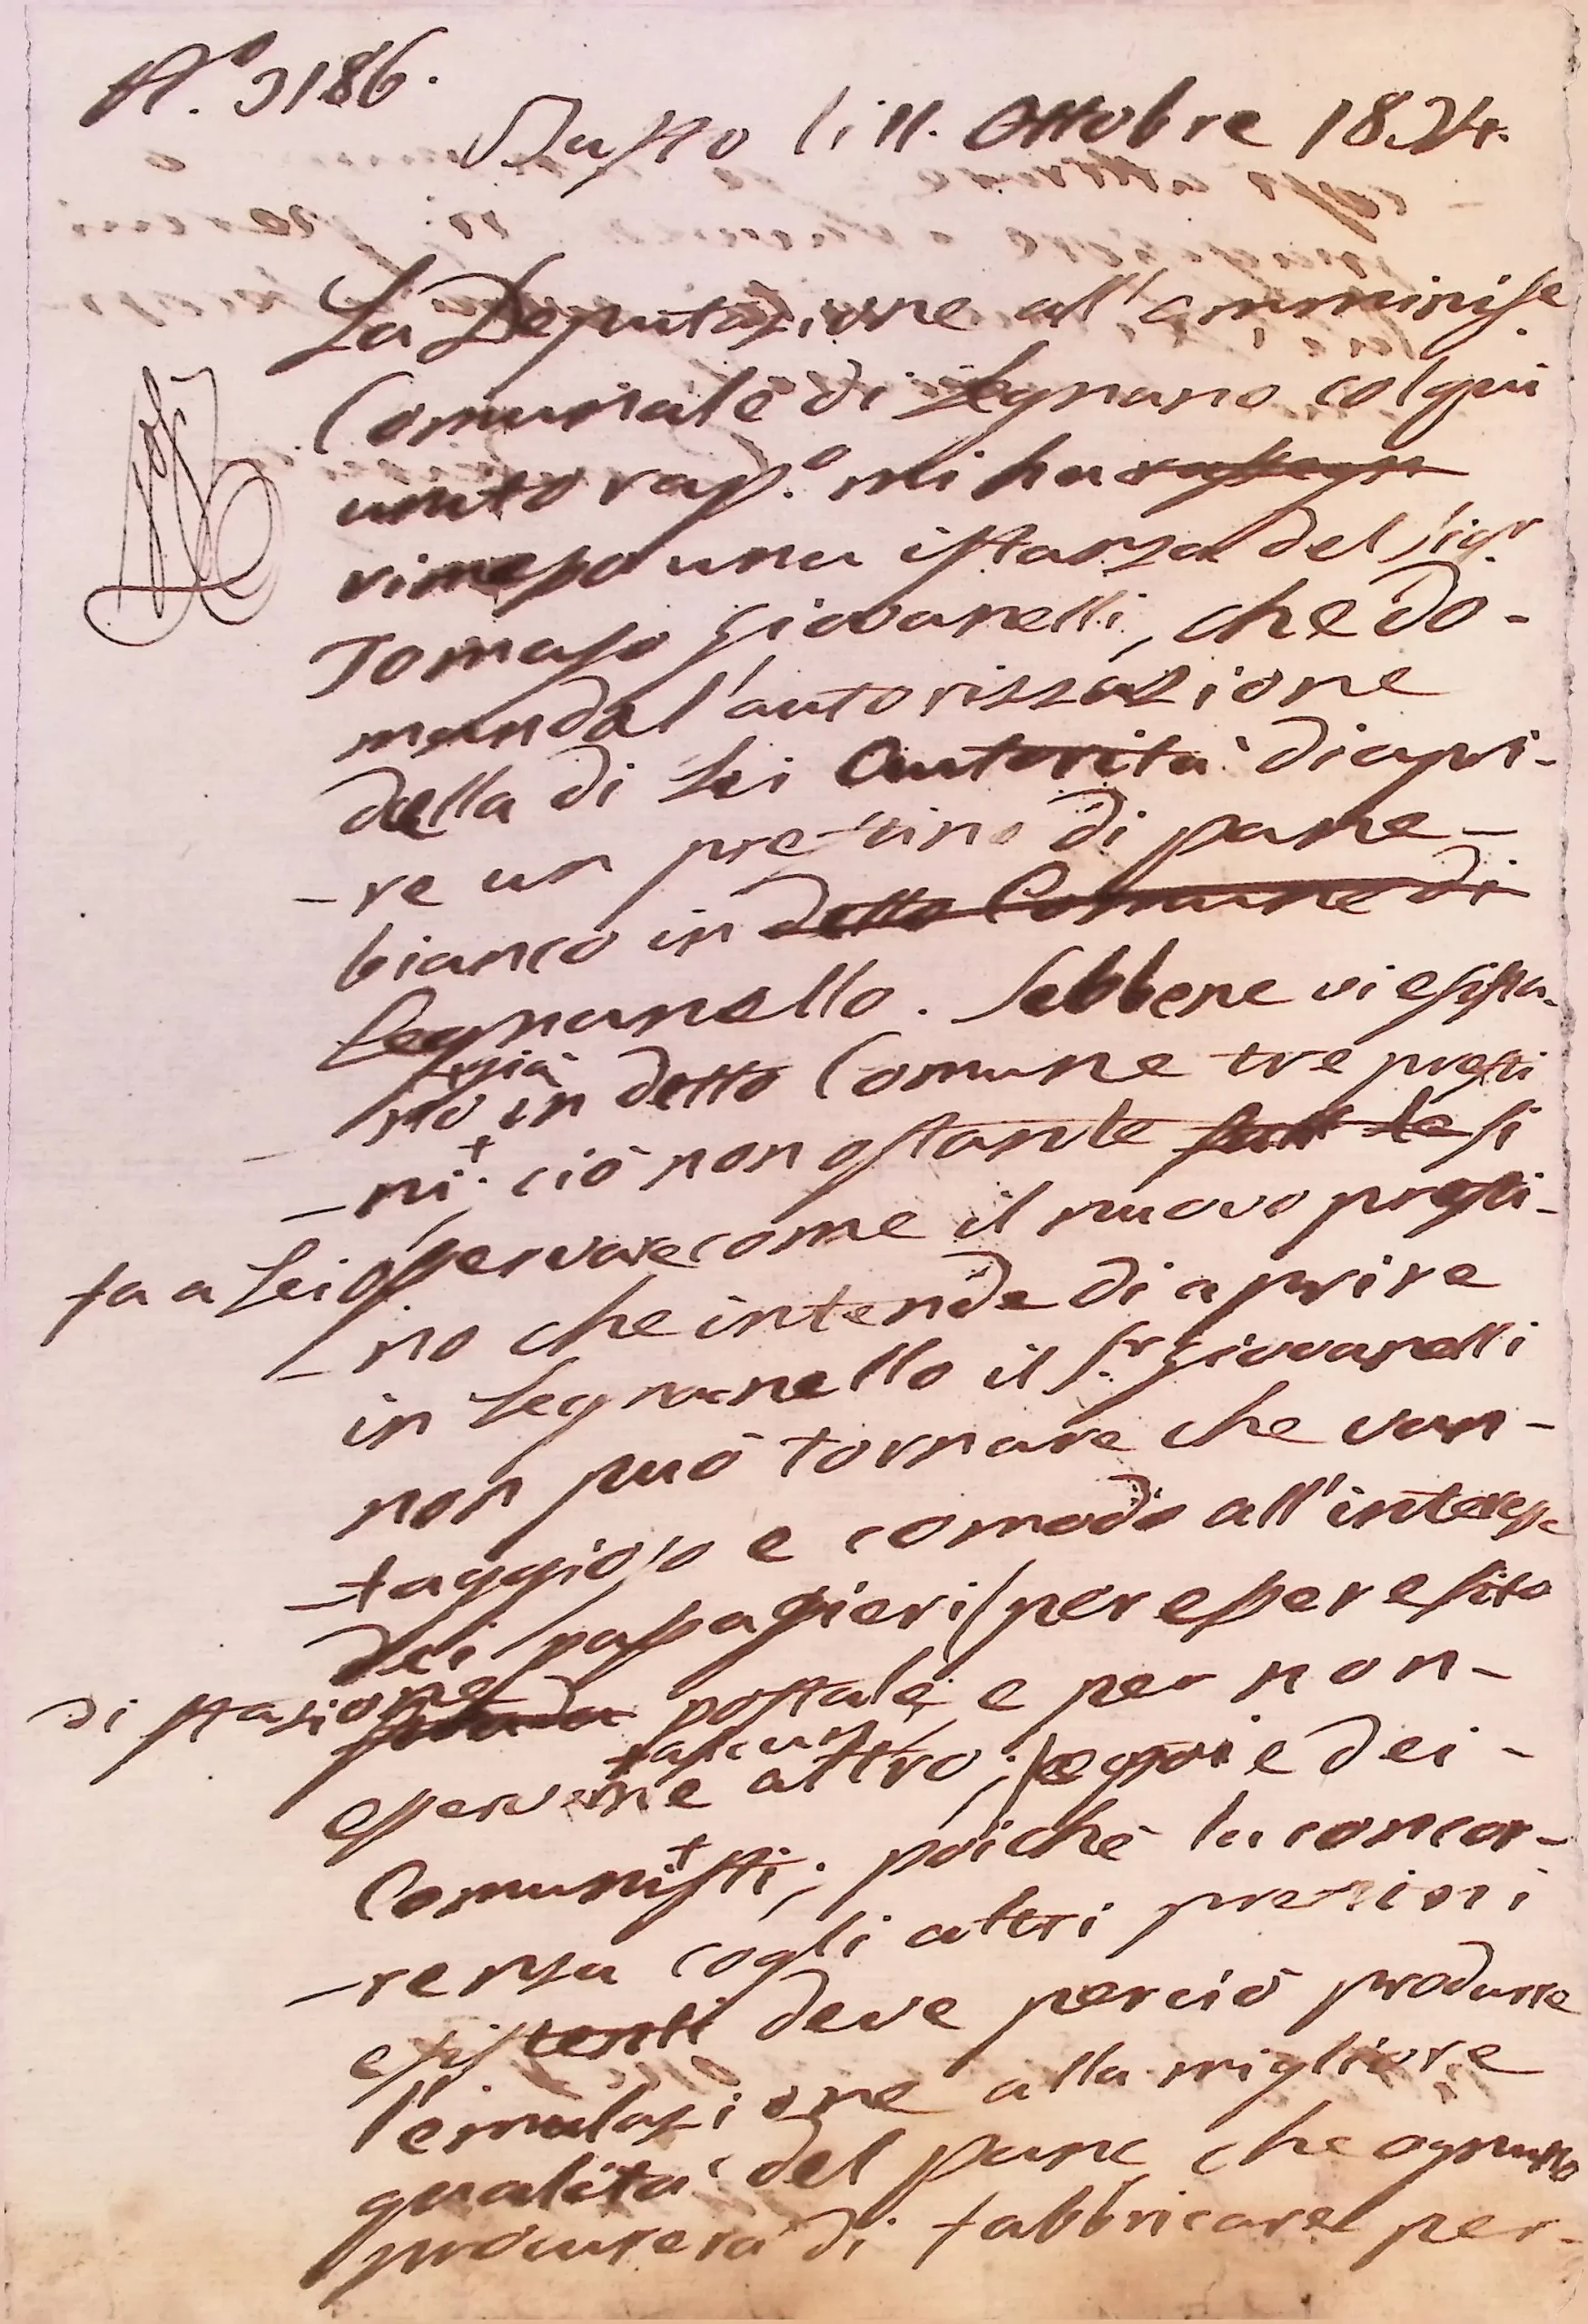 N.° 3186.
Busto li 11. Ottobre 1824.
La Deputazione all'amminist.e
Comunale di Legnano col qui
unito rap.o mi ha
rimesso una istanza del Sigr
Tomaso Giovanelli, che do-
manda l'autorizzazione
della di Lei Autorità di apri-
-re un prestino di pane-
bianco in detto Comune di
Legnanello. Sebbene vi esista-
già
no in detto Comune tre presti
-ni; ciò non ostante si
fa a Lei osservare come il nuovo presti-
-no che intende di aprire
in Legnanello il Sr Giovanelli
non può tornare che van-
-taggioso e comodo all'interesse
dei passaggieri (per essere sito
di stazione postale, e per non-
esservene altro;) e poi e dei-
Comunisti; poichè la concor-
-renza cogli altri prestini
esistenti deve perciò produrre
l'emulazione alla migliore
qualità del pane che ognuno
procurerà di fabbricare per-